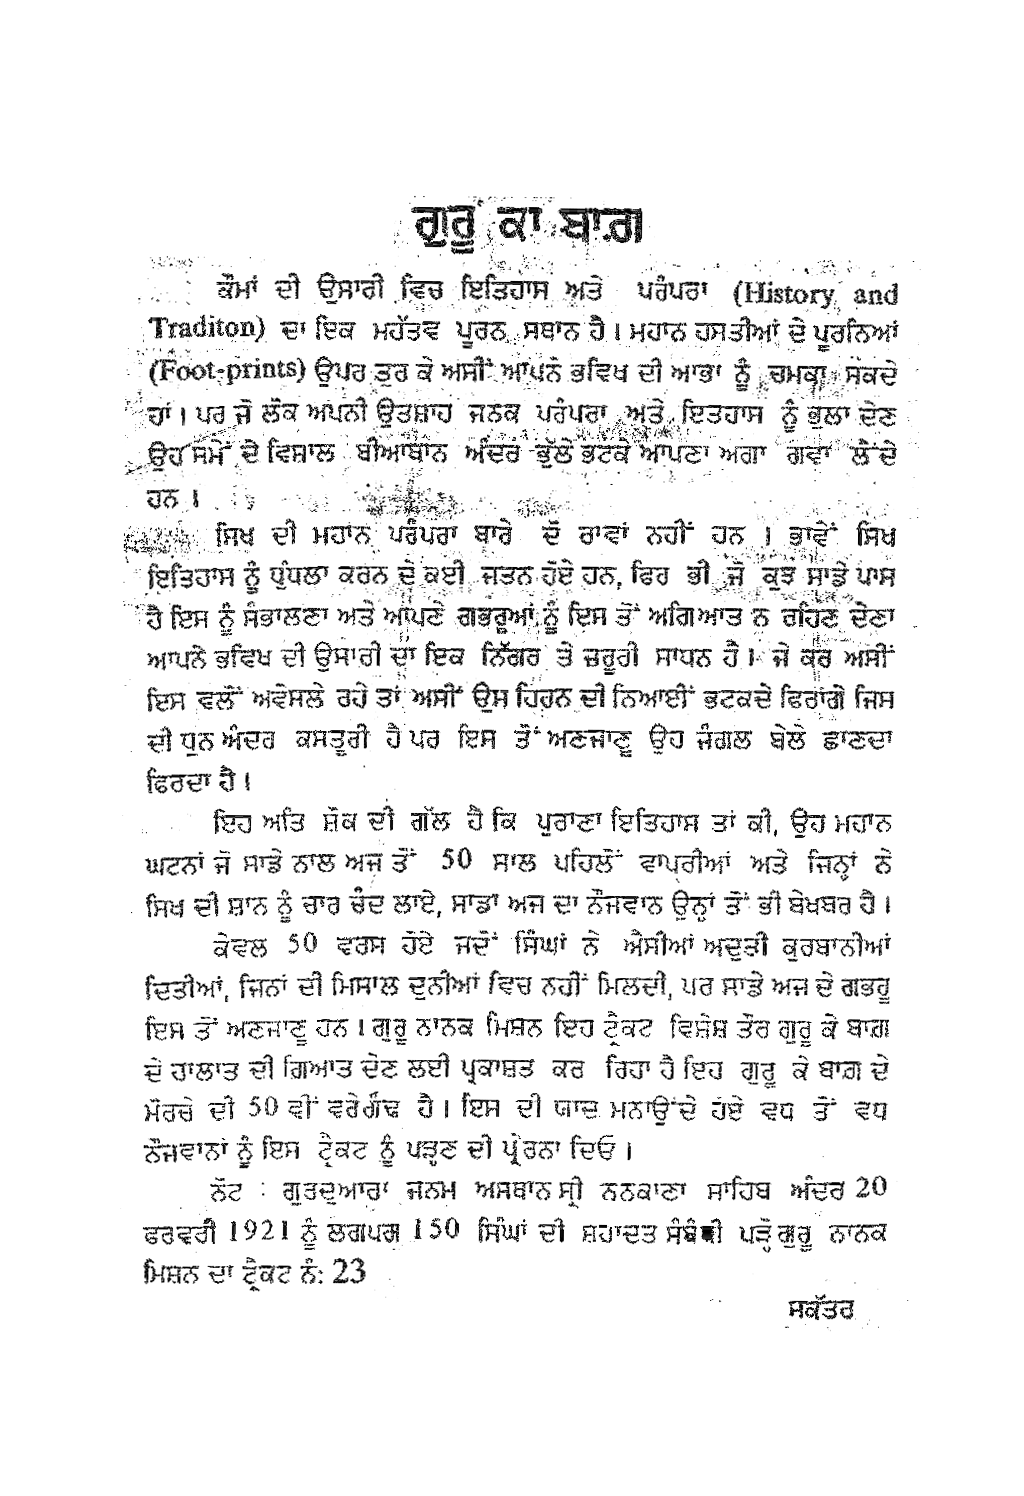 ਗੁਰੂ ਕਾ ਬਾਗ਼
ਕੌਮਾਂ ਦੀ ਉਸਾਰੀ ਵਿਚ ਇਤਿਹਾਸ ਅਤੇ ਪਰੰਪਰਾ (History and
Traditon) ਦਾ ਇਕ ਮਹੱਤਵ ਪੂਰਨ ਸਥਾਨ ਹੈ। ਮਹਾਨ ਹਸਤੀਆਂ ਦੇ ਪੂਰਨਿਆਂ
(Foot-prints) ਉਪਰ ਤੁਰ ਕੇ ਅਸੀਂ ਆਪਨੇ ਭਵਿਖ ਦੀ ਆਭਾ ਨੂੰ ਚਮਕਾ ਸਕਦੇ
ਹਾਂ। ਪਰ ਜੋ ਲੋਕ ਅਪਨੀ ਉਤਸ਼ਾਹ ਜਨਕ ਪਰੰਪਰਾ ਅਤੇ ਇਤਹਾਸ ਨੂੰ ਭੁਲਾ ਦੇਣ
ਉਹ ਸਮੇਂ ਦੇ ਵਿਸ਼ਾਲ ਬੀਆਬਾਨ ਅੰਦਰ ਭੁੱਲੇ ਭਟਕੇ ਆਪਣਾ ਅਗਾ ਗਵਾ ਲੈਂਦੇ
ਹਨ।
ਸਿਖ ਦੀ ਮਹਾਨ ਪਰੰਪਰਾ ਬਾਰੇ ਦੋ ਰਾਵਾਂ ਨਹੀਂ ਹਨ। ਭਾਵੇਂ ਸਿਖ
ਇਤਿਹਾਸ ਨੂੰ ਧੁੰਧਲਾ ਕਰਨ ਦੇ ਕਈ ਜਤਨ ਹੋਏ ਹਨ, ਫਿਰ ਭੀ ਜੋ ਕੁਝ ਸਾਡੇ ਪਾਸ
ਹੈ ਇਸ ਨੂੰ ਸੰਭਾਲਣਾ ਅਤੇ ਆਪਣੇ ਗਭਰੂਆਂ ਨੂੰ ਇਸ ਤੋਂ ਅਗਿਆਤ ਨ ਰਹਿਣ ਦੇਣਾ
ਆਪਨੇ ਭਵਿਖ ਦੀ ਉਸਾਰੀ ਦਾ ਇਕ ਨਿੱਗਰ ਤੇ ਜ਼ਰੂਰੀ ਸਾਧਨ ਹੈ। ਜੇ ਕਰ ਅਸੀਂ
ਇਸ ਵਲੋਂ ਅਵੇਸਲੇ ਰਹੇ ਤਾਂ ਅਸੀਂ ਉਸ ਹਿਰਨ ਦੀ ਨਿਆਈਂ ਭਟਕਦੇ ਫਿਰਾਂਗੇ ਜਿਸ
ਦੀ ਧੁਨ ਅੰਦਰ ਕਸਤੂਰੀ ਹੈ ਪਰ ਇਸ ਤੋਂ ਅਣਜਾਣੂ ਉਹ ਜੰਗਲ ਬੇਲੇ ਛਾਣਦਾ
ਫਿਰਦਾ ਹੈ।
ਇਹ ਅਤਿ ਸ਼ੋਕ ਦੀ ਗੱਲ ਹੈ ਕਿ ਪੁਰਾਣਾ ਇਤਿਹਾਸ ਤਾਂ ਕੀ, ਉਹ ਮਹਾਨ
ਘਟਨਾਂ ਜੋ ਸਾਡੇ ਨਾਲ ਅਜ ਤੋਂ 50 ਸਾਲ ਪਹਿਲੋਂ ਵਾਪਰੀਆਂ ਅਤੇ ਜਿਨ੍ਹਾਂ ਨੇ
ਸਿਖ ਦੀ ਸ਼ਾਨ ਨੂੰ ਚਾਰ ਚੰਦ ਲਾਏ, ਸਾਡਾ ਅਜ ਦਾ ਨੌਜਵਾਨ ਉਨ੍ਹਾਂ ਤੋਂ ਭੀ ਬੇਖਬਰ ਹੈ।
ਕੇਵਲ 50 ਵਰਸ ਹੋਏ ਜਦੋਂ ਸਿੰਘਾਂ ਨੇ ਐਸੀਆਂ ਅਦੁਤੀ ਕੁਰਬਾਨੀਆਂ
ਦਿਤੀਆਂ, ਜਿਨਾਂ ਦੀ ਮਿਸਾਲ ਦੁਨੀਆਂ ਵਿਚ ਨਹੀਂ ਮਿਲਦੀ, ਪਰ ਸਾਡੇ ਅਜ ਦੇ ਗਭਰੂ
ਇਸ ਤੋਂ ਅਣਜਾਣੂ ਹਨ। ਗੁਰੂ ਨਾਨਕ ਮਿਸ਼ਨ ਇਹ ਟ੍ਰੈਕਟ ਵਿਸ਼ੇਸ਼ ਤੌਰ ਗੁਰੂ ਕੇ ਬਾਗ਼
ਦੇ ਹਾਲਾਤ ਦੀ ਗਿਆਤ ਦੇਣ ਲਈ ਪ੍ਰਕਾਸ਼ਤ ਕਰ ਰਿਹਾ ਹੈ ਇਹ ਗੁਰੂ ਕੇ ਬਾਗ਼ ਦੇ
ਮੋਰਚੇ ਦੀ 50 ਵੀਂ ਵਰੇਗੰਢ ਹੈ। ਇਸ ਦੀ ਯਾਦ ਮਨਾਉਂਦੇ ਹੋਏ ਵਧ ਤੋਂ ਵਧ
ਨੌਜਵਾਨਾਂ ਨੂੰ ਇਸ ਟ੍ਰੈਕਟ ਨੂੰ ਪੜ੍ਹਣ ਦੀ ਪ੍ਰੇਰਨਾ ਦਿਓ।
ਨੋਟ : ਗੁਤਦੁਆਰਾ ਜਨਮ ਅਸਥਾਨ ਸ੍ਰੀ ਨਨਕਾਣਾ ਸਾਹਿਬ ਅੰਦਰ 20
ਫਰਵਰੀ 1921 ਨੂੰ ਲਗਪਗ 150 ਸਿੰਘਾਂ ਦੀ ਸ਼ਹਾਦਤ ਸੰਬੰਧੀ ਪੜ੍ਹੋ ਗੁਰੂ ਨਾਨਕ
ਮਿਸ਼ਨ ਦਾ ਟ੍ਰੈਕਟ ਨੰ: 23
ਸਕੱਤਰ